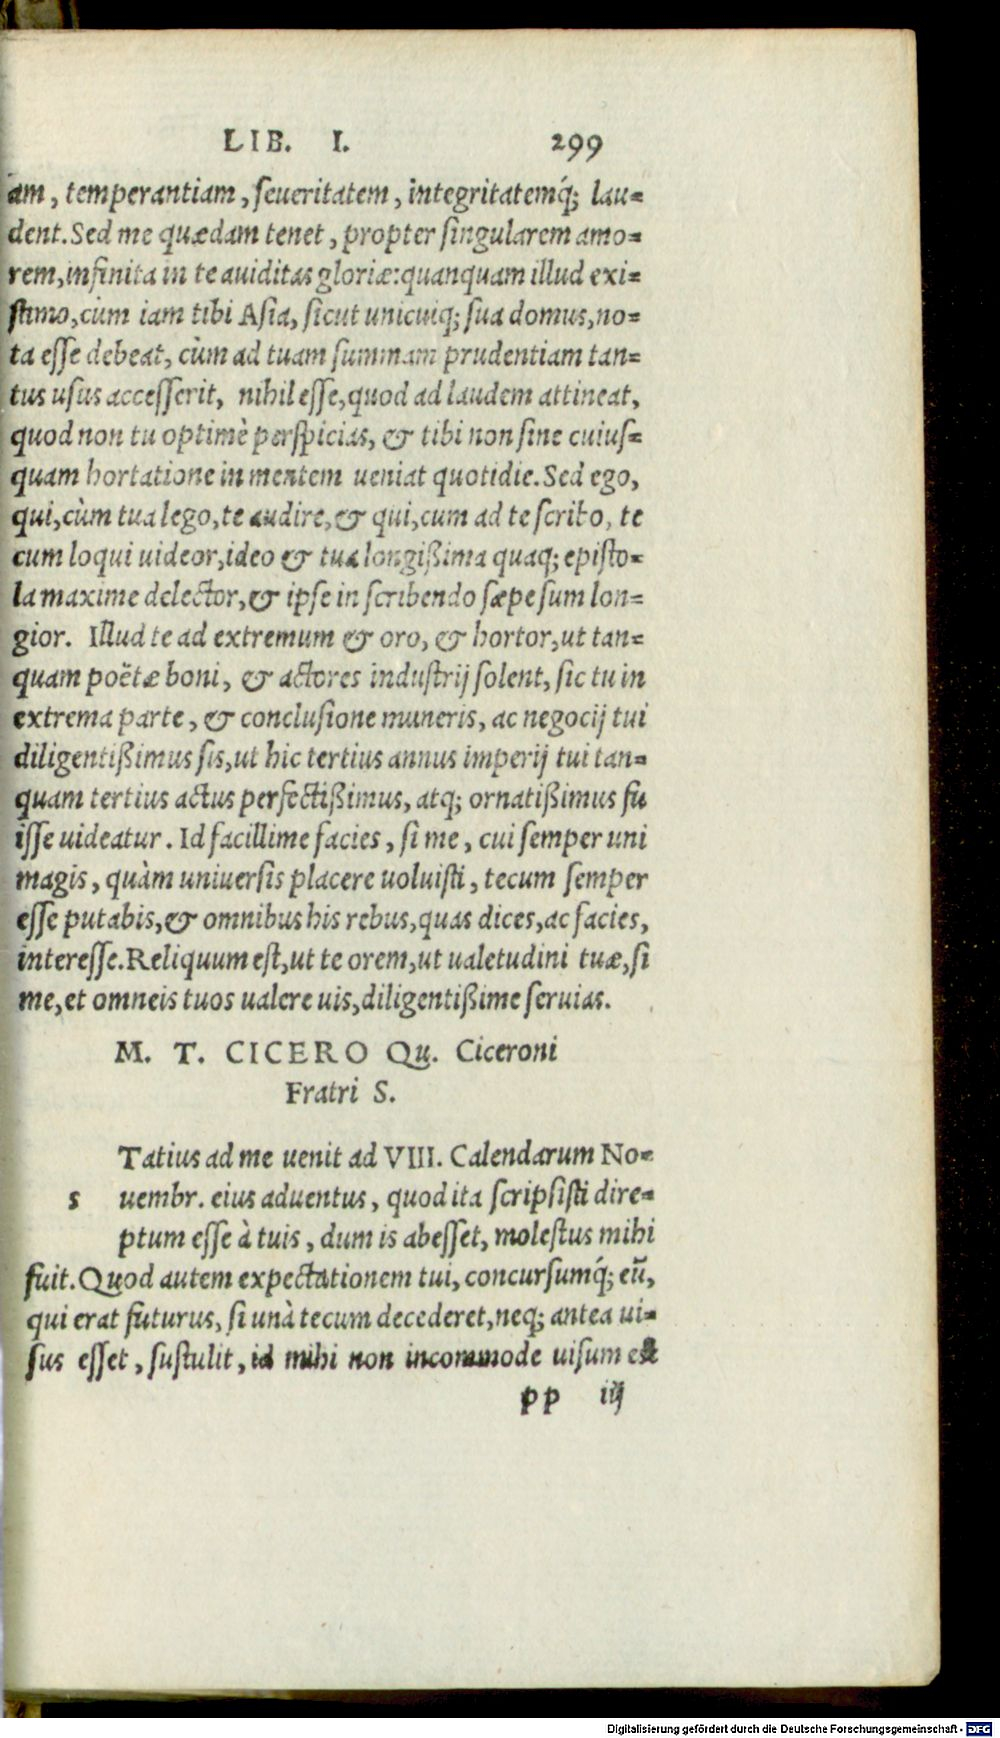 LIB. I. 299
am, temperantiam, seueritatem, integritatemq́; lau-
dent. Sed me quædam tenet, propter singularem amo-
rem, infinita in te auiditas gloriæ: quanquam illud exi-
stimo, cùm iam tibi Asia, sicut unicuiq; sua domus, no-
ta esse debeat, cùm ad tuam summam prudentiam tan-
tus usus accesserit, nihil esse, quod ad laudem attineat,
quod non tu optimè perspicias, & tibi non sine cuius-
quam hortatione in mentem ueniat quotidie. Sed ego,
qui, cùm tua lego, te audire, & qui, cum ad te scribo, te
cum loqui uideor, ideo & tua longißima quaq; episto-
la maxime delector, & ipse in scribendo sæpe sum lon-
gior. Illud te ad extremum & oro, & hortor, ut tan-
quam poëtæ boni, & actores industrij solent, sic tu in
extrema parte, & conclusione muneris, ac negocij tui
diligentißimus sis, ut hic tertius annus imperij tui tan-
quam tertius actus perfectißimus, atq; ornatißimus fu
isse uideatur. Id facillime facies, si me, cui semper uni
magis, quàm uniuersis placere uoluisti, tecum semper
esse putabis, & omnibus his rebus, quas dices, ac facies,
interesse. Reliquum est, ut te orem, ut ualetudini tuæ, si
me, et omneis tuos ualere uis, diligentißime seruias.
M. T. CICERO Qu. Ciceroni
Fratri S.
Tatius ad me uenit ad VIII. Calendarum No-
s uembr. eius aduentus, quod ita scripsisti dire-
ptum esse à tuis, dum is abesset, molestus mihi
fuit. Quod autem expectationem tui, concursumq́; eũ,
qui erat futurus, si unà tecum decederet, neq; antea ui-
sus esset, sustulit, id mihi non incommode uisum est
pp iij
Digitalisierung gefördert durch die Deutsche Forschungsgemeinschaft - DFG